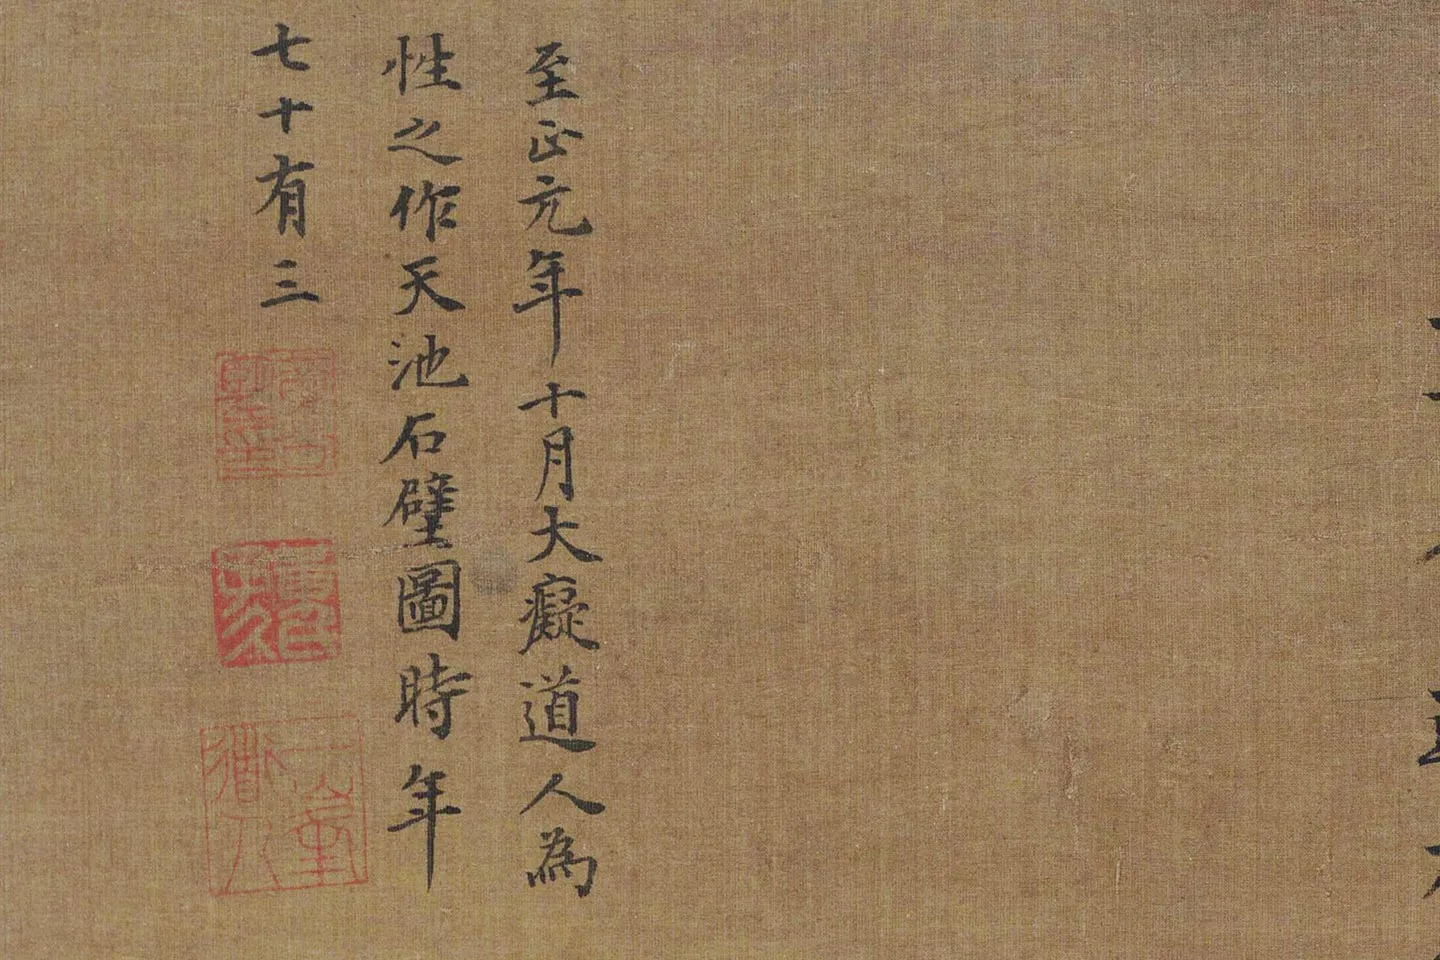 至正元年十月大癡道人為
性之作天池石壁圖時年
七十有三
一峯道人